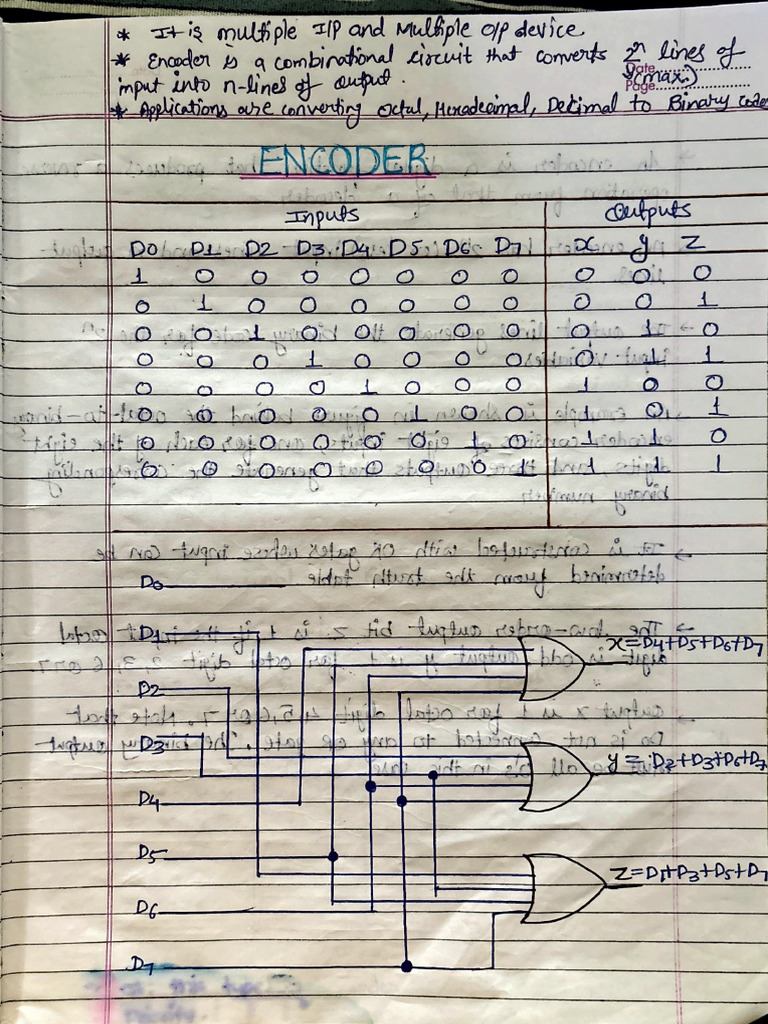 * It is multiple I/P and Multiple O/P device
* Encoder is a combinational circuit that converts 2ⁿ lines of
input into n-lines of output. (max.)
Date
Page
* Applications are converting Octal, Hexadecimal, Decimal to Binary codes
ENCODER
Inputs Outputs
D0 D1 D2 D3 D4 D5 D6 D7 x y z
1 0 0 0 0 0 0 0 0 0 0
0 1 0 0 0 0 0 0 0 0 1
0 0 1 0 0 0 0 0 0 1 0
0 0 0 1 0 0 0 0 0 1 1
0 0 0 0 1 0 0 0 1 0 0
0 0 0 0 0 1 0 0 1 0 1
0 0 0 0 0 0 1 0 1 1 0
0 0 0 0 0 0 0 1 1 1 1
D0
D1
x=D4+D5+D6+D7
D2
D3
y=D2+D3+D6+D7
D4
D5
z=D1+D3+D5+D7
D6
D7